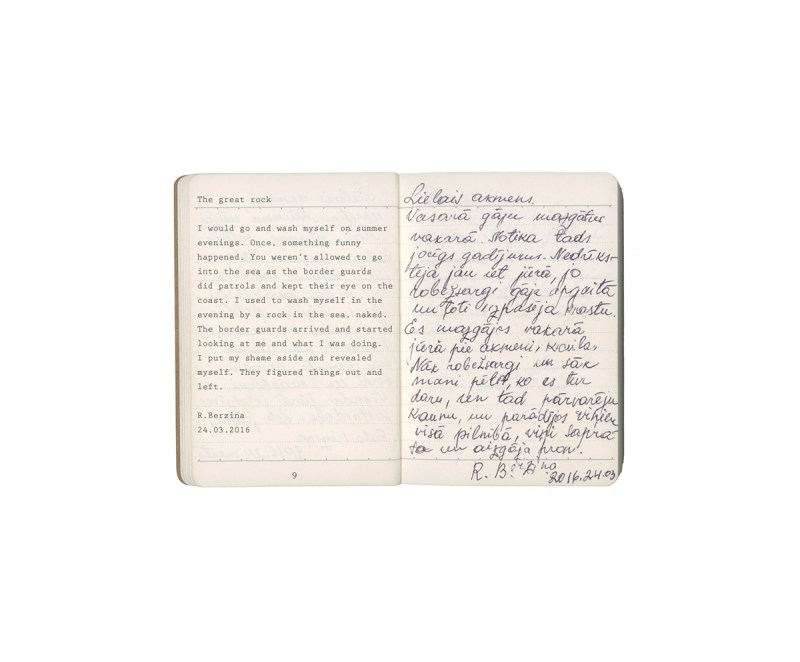 The great rock
I would go and wash myself on summer
evenings. Once, something funny
happened. You weren't allowed to go
into the sea as the border guards
did patrols and kept their eye on the
coast. I used to wash myself in the
evening by a rock in the sea, naked.
The border guards arrived and started
looking at me and what I was doing.
I put my shame aside and revealed
myself. They figured things out and
left.
R.Berzina
24.03.2016
9
Lielais akmens.
Vasarā gāju mazgāties
vakarā. Notika tāds
jocīgs gadījums. Nedrīks-
tēja jau iet jūrā, jo
robežsargi gāja apgaitā
un ļoti izpasēja krastu.
Es mazgājos vakarā
jūrā pie akmeni, kaila.
Nāk robežsargi un sāk
mani pētīt, ko es tur
daru, un tad pārvarēju
kaunu, un parādījos viņiem
visā pilnībā, viņi sapra-
ta un aizgāja prom.
R. Bērziņa 2016.24.03